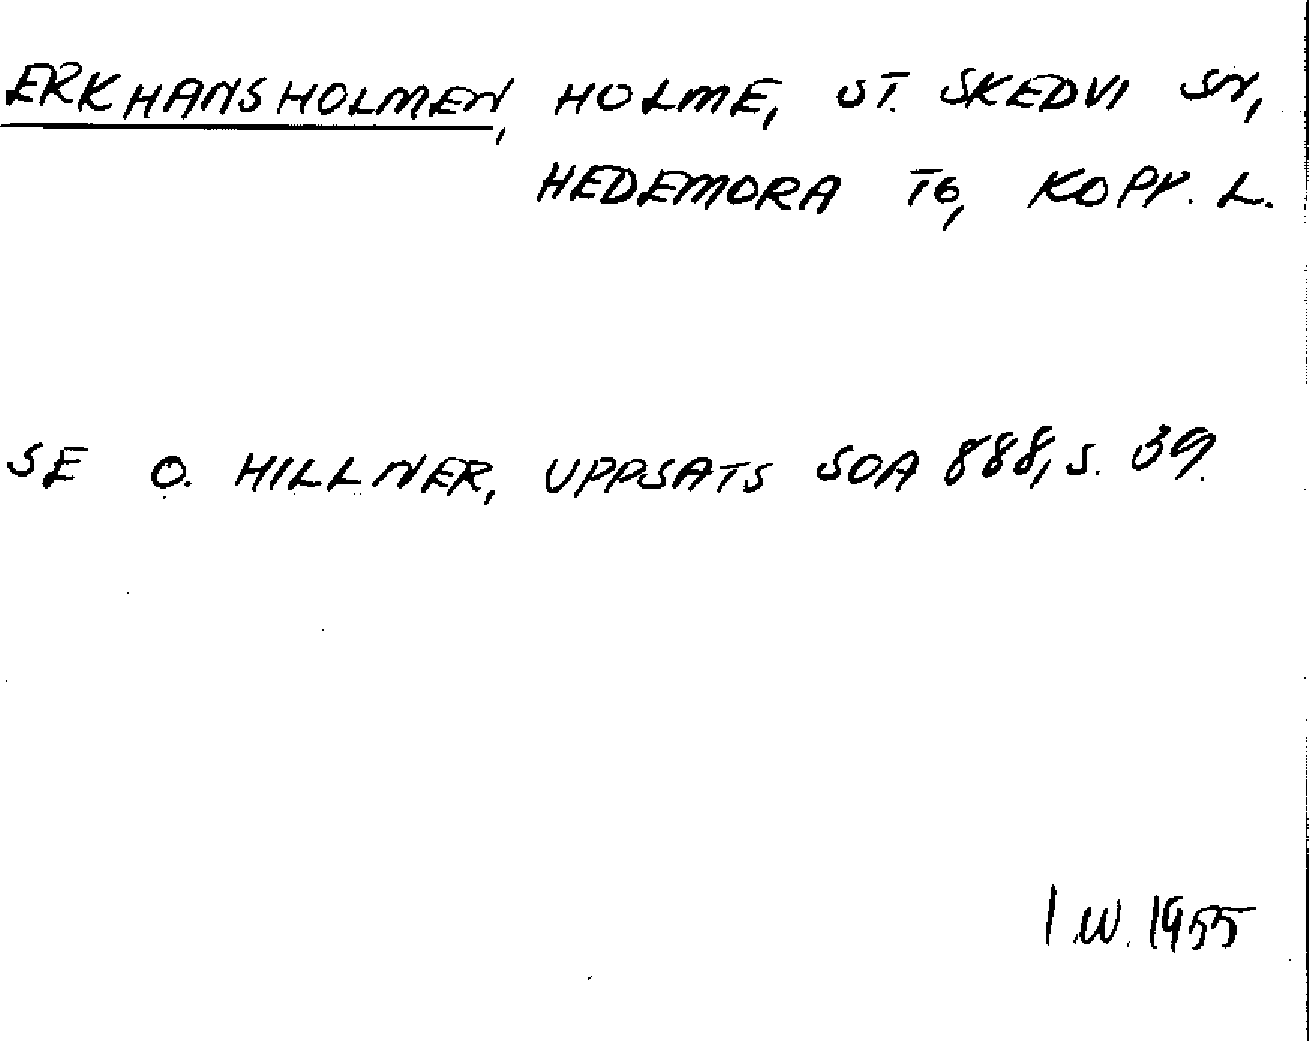 ERKHANSHOLMEN, HOLME, ST. SKEDVI SN,
HEDEMORA TG, KOPP. L.
SE O. HILLNER, UPPSATS SOA 888, S. 39.
I W. 1955